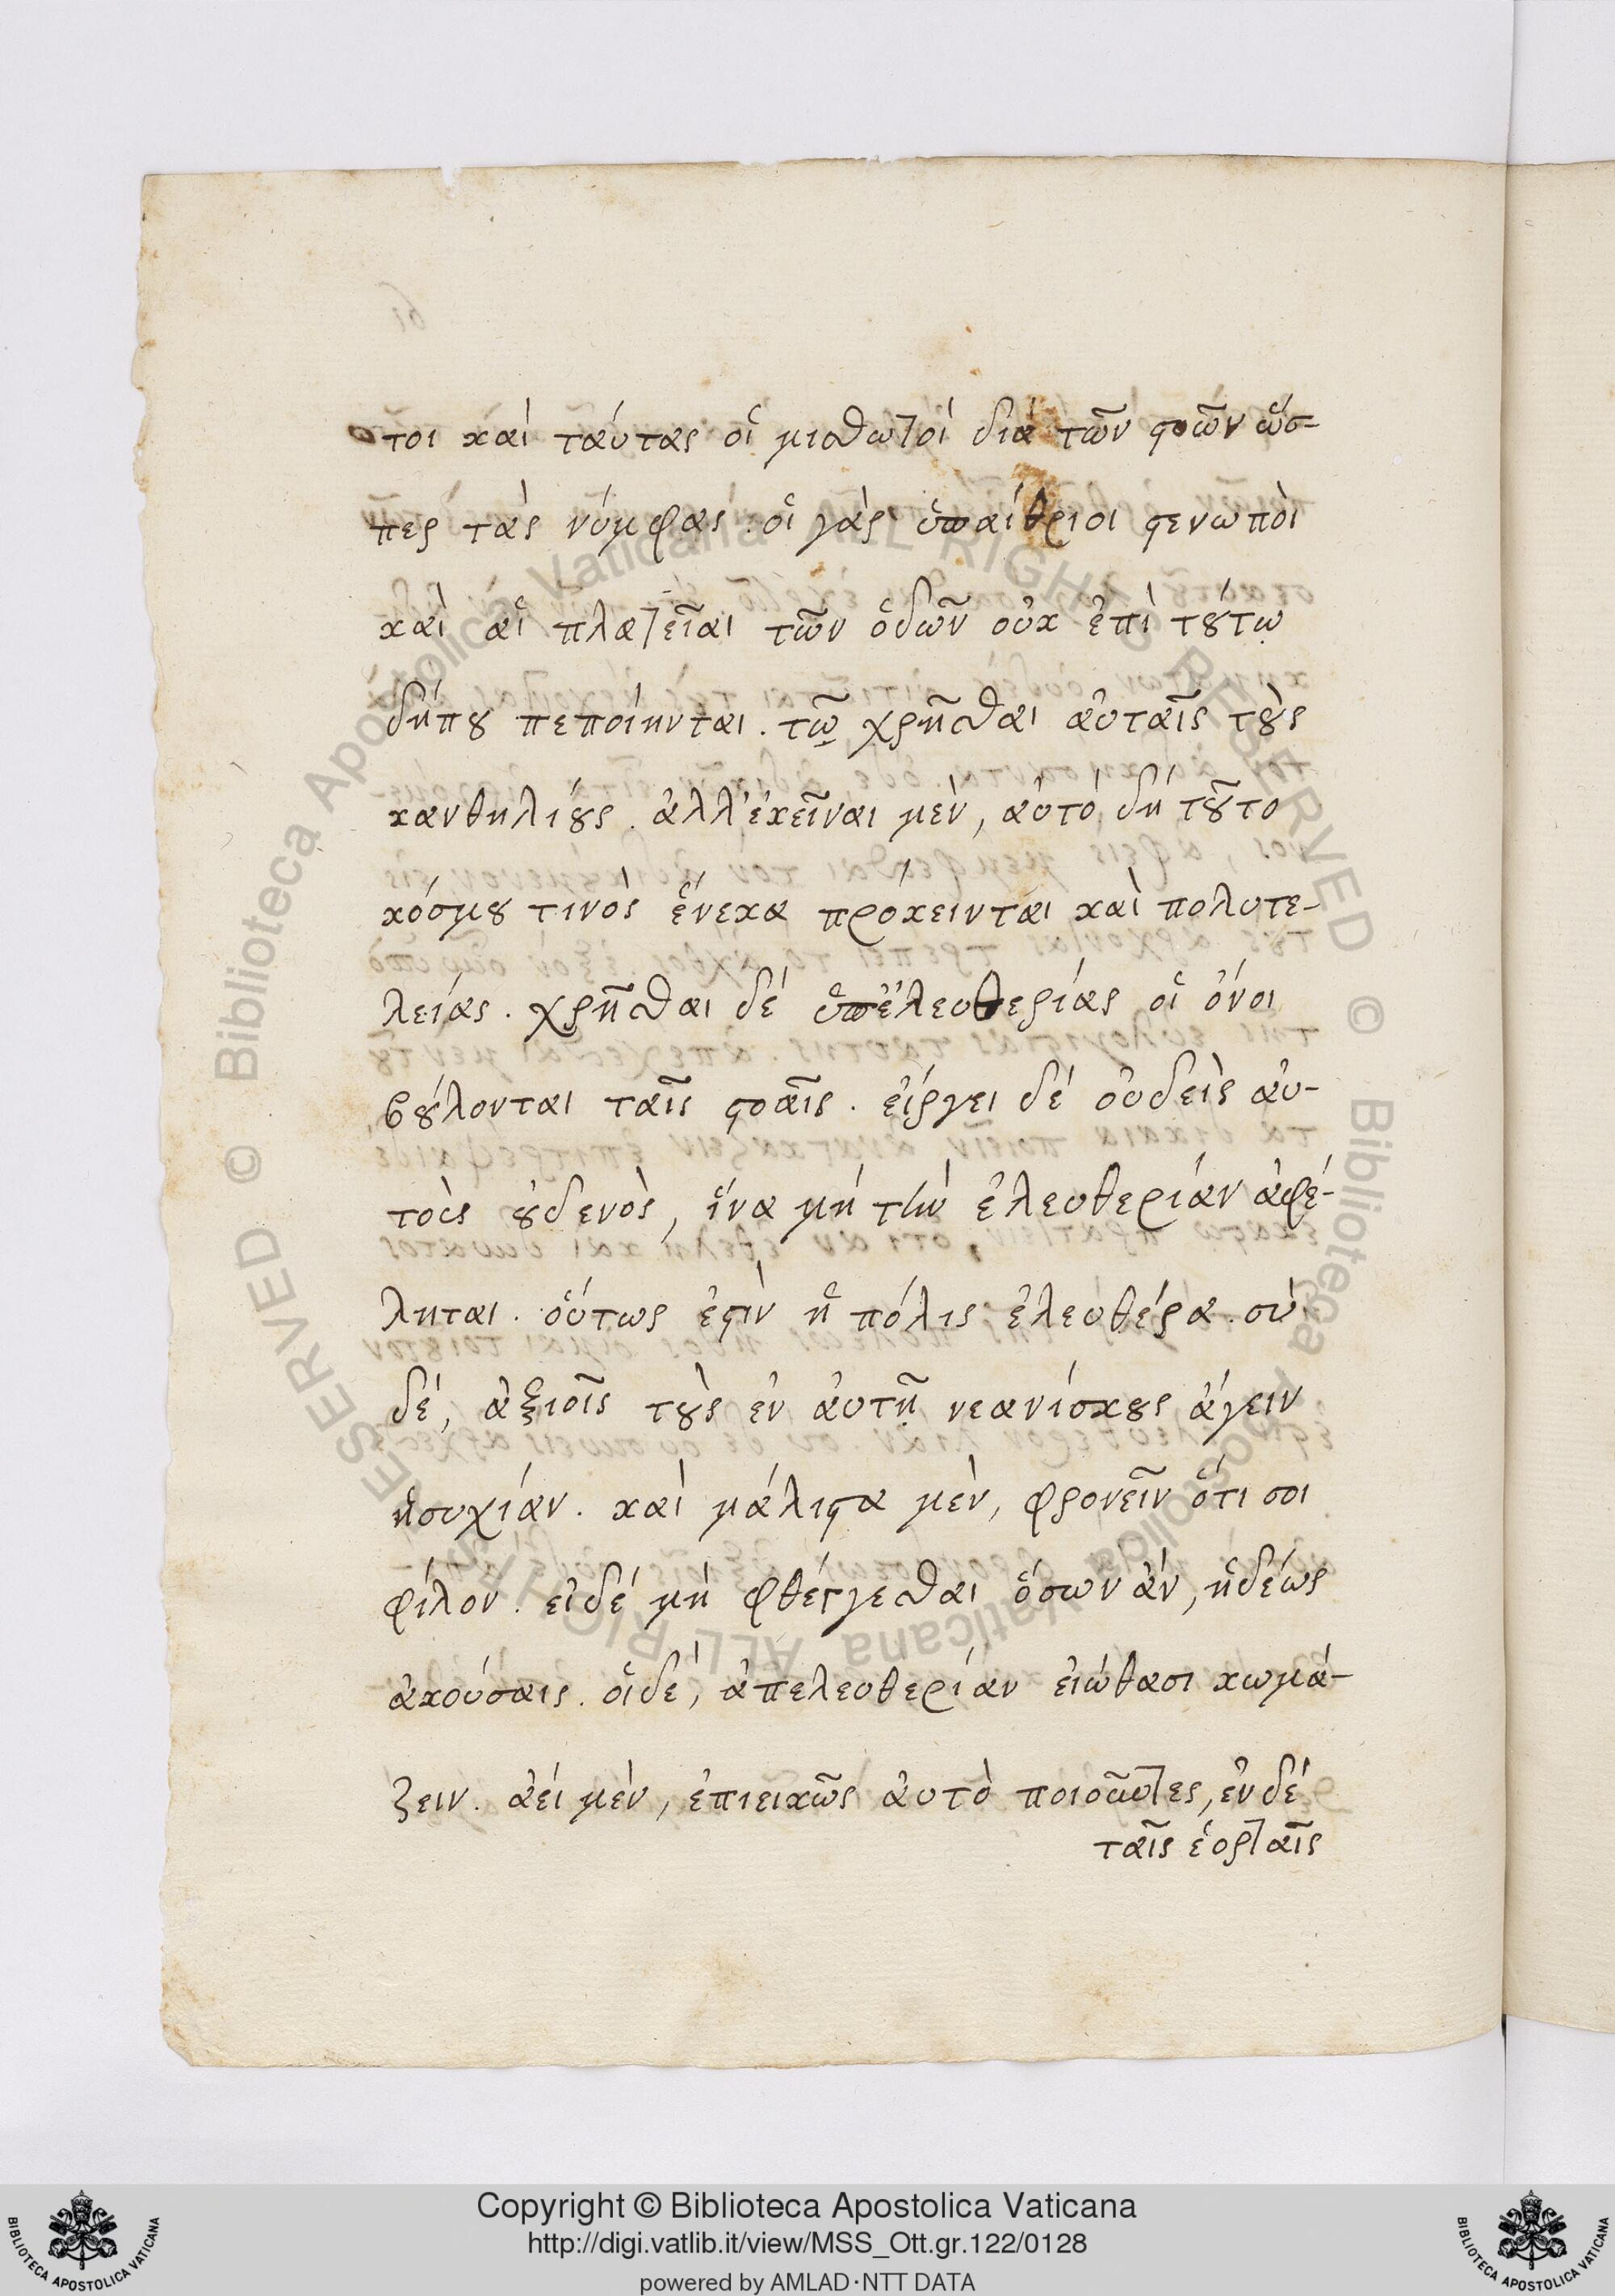 τοι καὶ ταύτας οἱ μισθωτοὶ διὰ τῶν στοῶν ὥσ-
περ τὰς νύμφας. οἱ γὰρ ὑπαίθριοι στενωποὶ
καὶ αἱ πλατεῖαι τῶν ὁδῶν οὐκ ἐπὶ τούτῳ
δήπου πεποίηνται. τῷ χρῆσθαι αὐταῖς τοὺς
κανθηλίους. ἀλλ' ἐκεῖναι μέν, αὐτὸ δὴ τοῦτο
κόσμου τινὸς ἕνεκα πρόκεινται καὶ πολυτε-
λείας. χρῆσθαι δὲ ὑπ' ἐλευθερίας οἱ ὄνοι
βούλονται ταῖς στοαῖς. εἴργει δὲ οὐδεὶς αὐ-
τοὺς οὐδενὸς, ἵνα μὴ τὴν ἐλευθερίαν ἀφέ-
ληται. οὕτως ἐστὶν ἡ πόλις ἐλευθέρα. σὺ
δέ, ἀξιοῖς τοὺς ἐν αὐτῇ νεανίσκους ἄγειν
ἡσυχίαν. καὶ μάλιστα μὲν, φρονεῖν ὅτι σοι
φίλον. εἰ δὲ μὴ φθέγγεσθαι ὅσων ἂν, ἡδέως
ἀκούσαις. οἱ δὲ, ἀπελευθερίαν εἰώθασι κωμά-
ζειν. ἀεὶ μὲν, ἐπιεικῶς αὐτὸ ποιοῦντες, ἐν δὲ
ταῖς ἑορταῖς
Copyright © Biblioteca Apostolica Vaticana
http://digi.vatlib.it/view/MSS_Ott.gr.122/0128
powered by AMLAD·NTT DATA